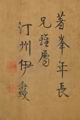 著峯年長
兄雅屬
汀州伊秉綬